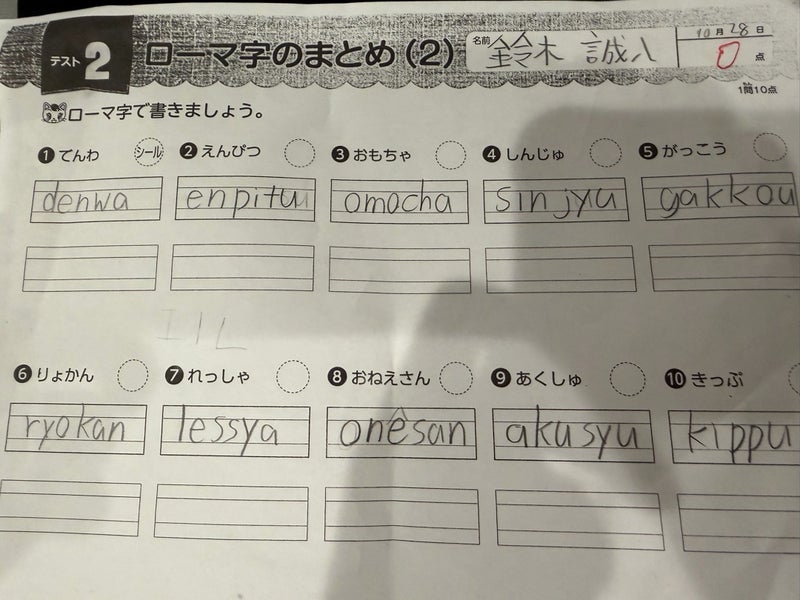 テスト 2 ローマ字のまとめ(2) 名前 鈴木 誠八 10月28日
0点
1問10点
ローマ字で書きましょう。
1 てんわ シール 2 えんぴつ 3 おもちゃ 4 しんじゅ 5 がっこう
denwa enpitu omocha sinjyu gakkou
6 りょかん 7 れっしゃ 8 おねえさん 9 あくしゅ 10 きっぷ
ryokan lessya onêsan akusyu kippu